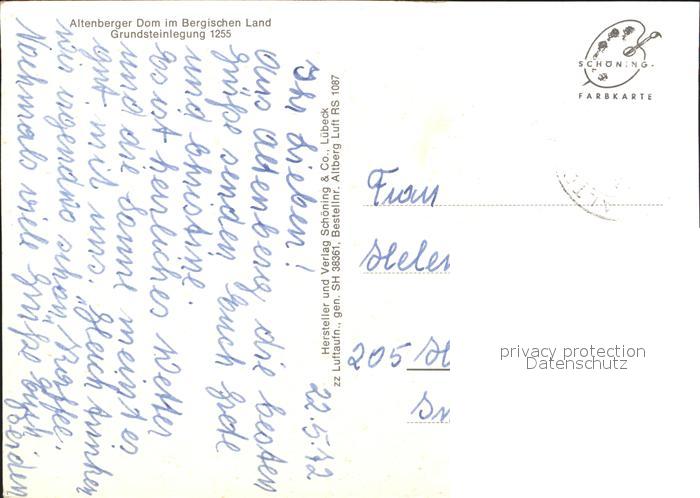 Altenberger Dom im Bergischen Land
Grundsteinlegung 1255
22.5.72
Ihr Lieben!
Aus Altenberg die besten
Grüße senden Euch Grete
und Christine.
Es ist herrliches Wetter
und die Sonne meint es
gut mit uns. Gleich trinken
wir irgendwo schön "Kaffee".
Nochmals viele Grüße Euch
beiden
Hersteller und Verlag Schöning & Co., Lübeck
zz Luftaufn., gen. SH 38361, Bestellnr. Altberg Luft RS 1087
SCHÖNING
FARBKARTE
Frau
Helen
205 H
privacy protection
Datenschutz